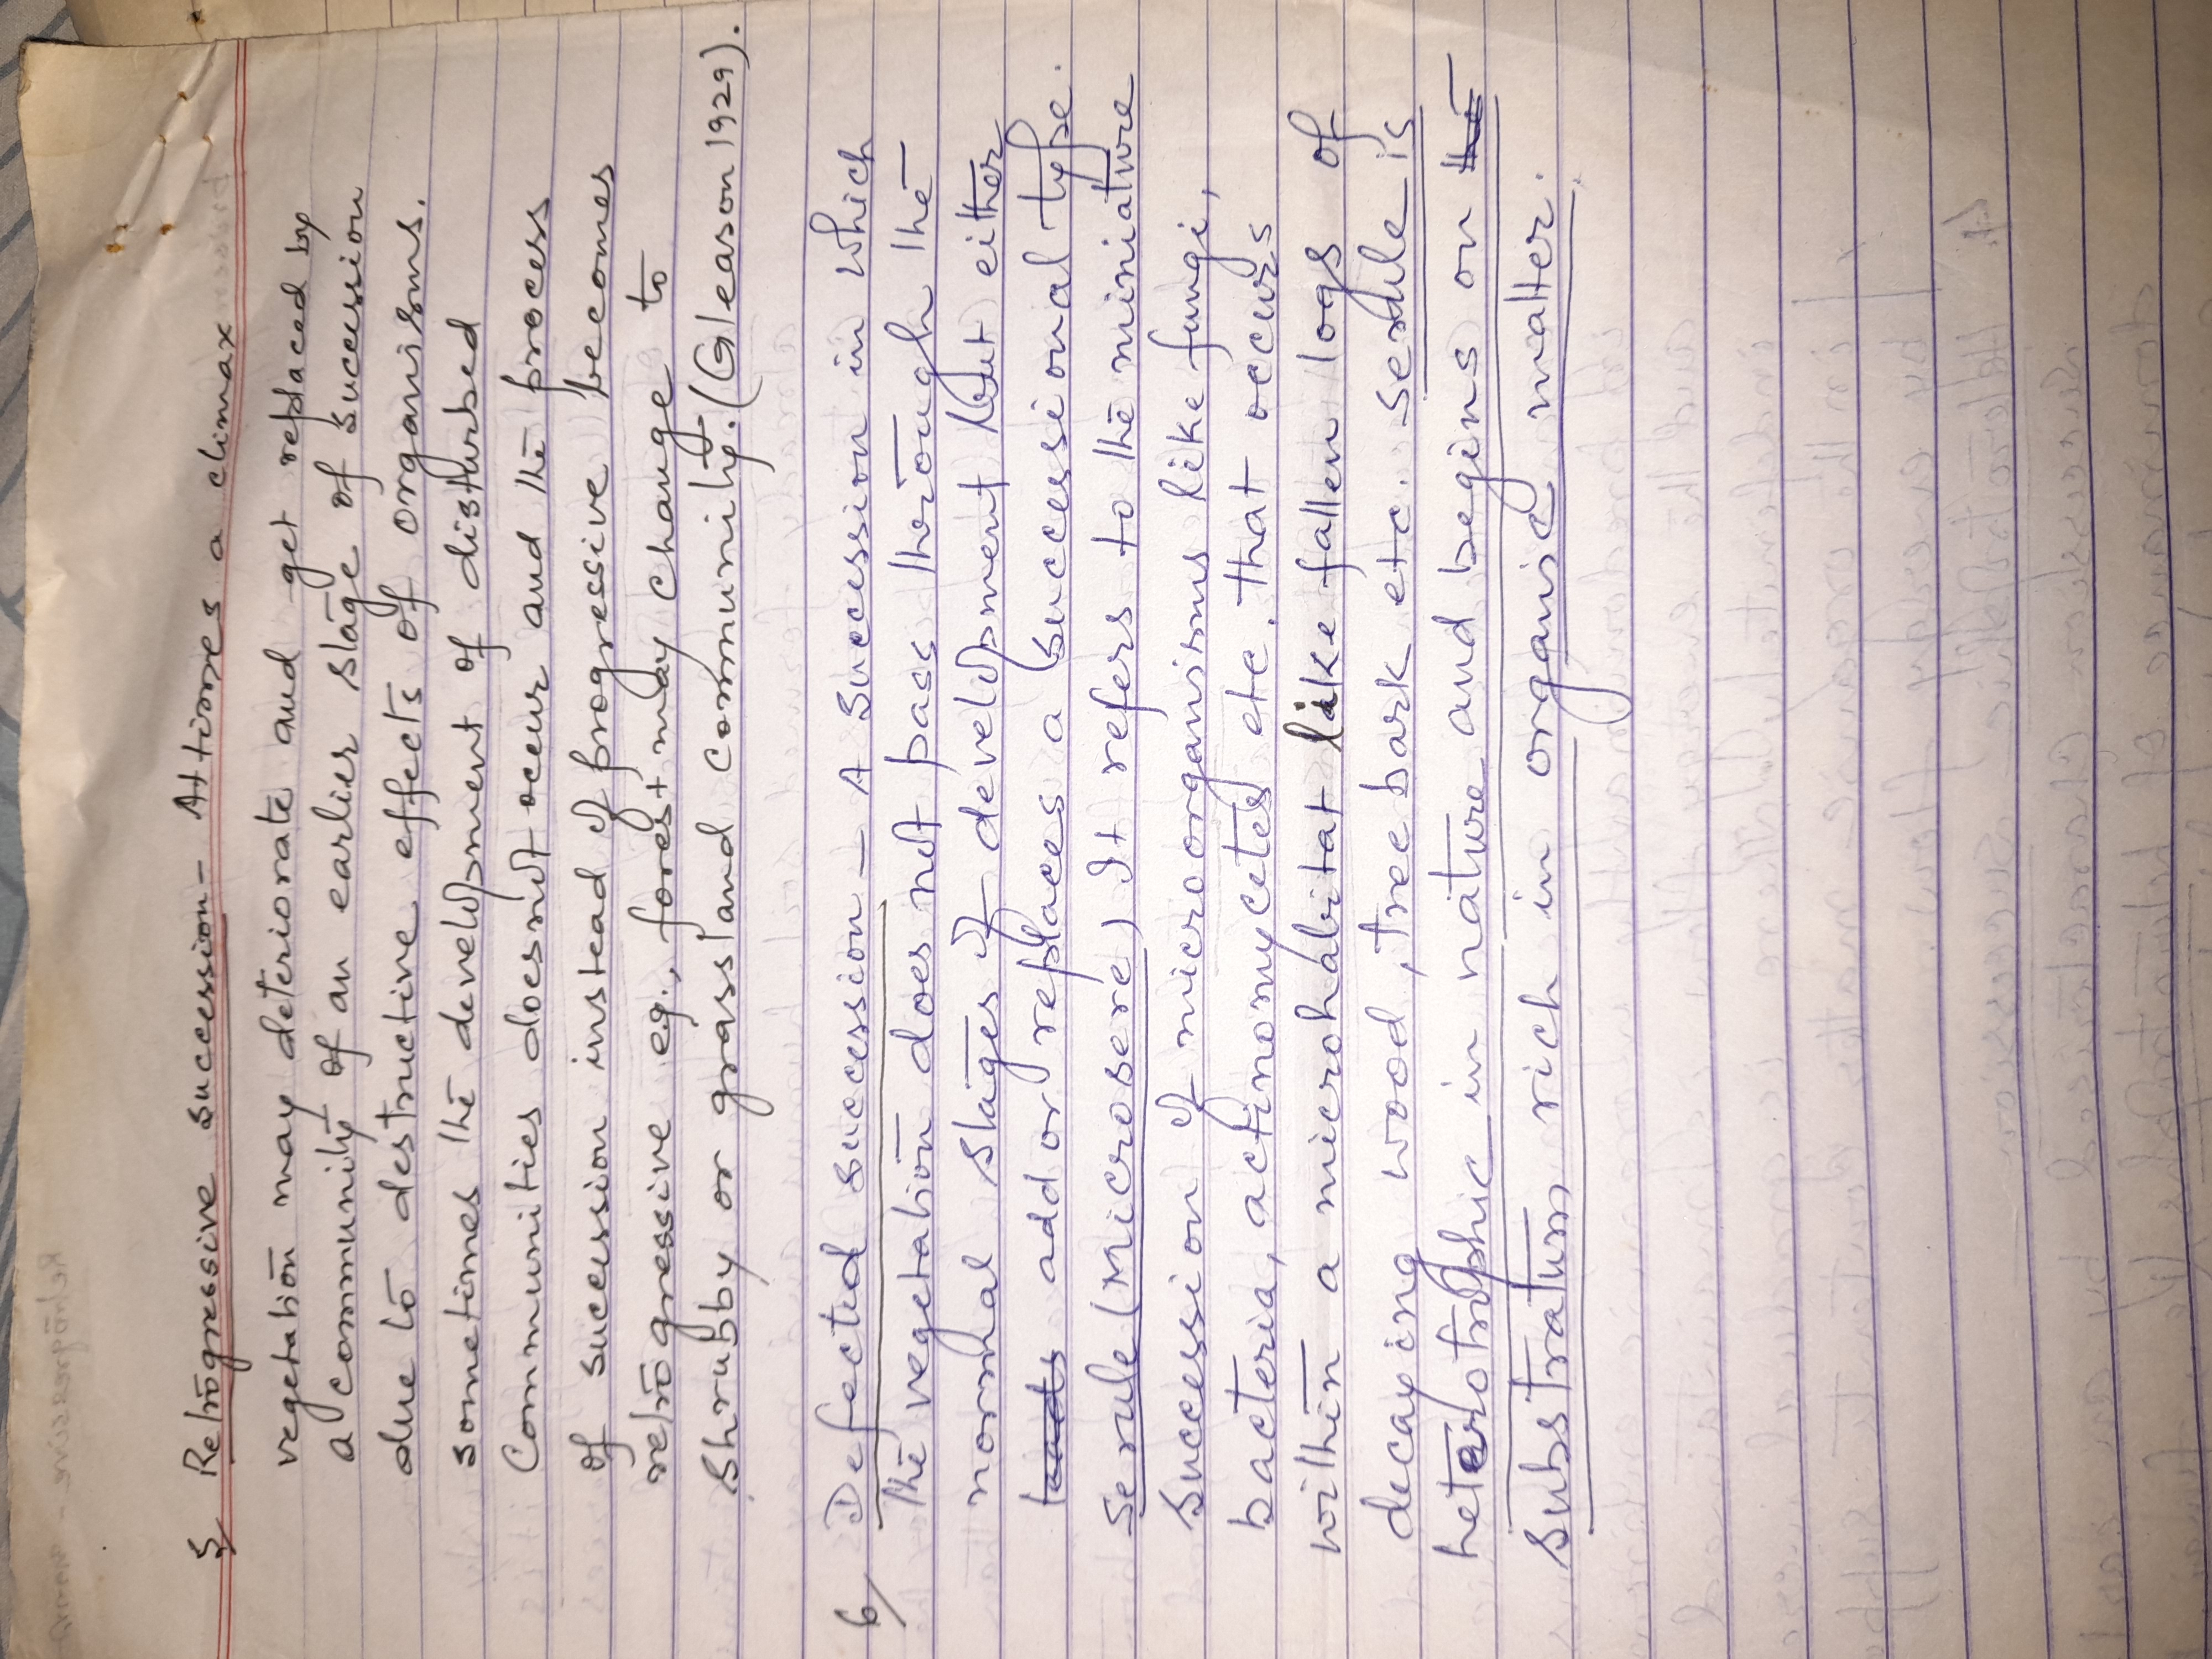 5/ Retrogressive succession - At times a climax
vegetation may deteriorate and get replaced by
a community of an earlier stage of succession
due to destructive effects of organisms.
sometimes the development of disturbed
Communities doesnot occur and the process
of succession instead of progressive becomes
retrogressive eg., forest may change to
Shrubby or grassland community. (Gleason 1929).
6/ Deflected succession - A succession in which
the vegetation does not pass thorough the
normal stages of development but either
add or replaces a successional type.
Serule (Microsere) It refers to the miniature
Succession of microorganisms like fungi,
bacteria, actinomycetes etc. that occurs
within a microhabitat like fallen logs of
decaying wood, tree bark etc. serule is
heterotrophic in nature and begins on the
Substratum rich in organic matter.